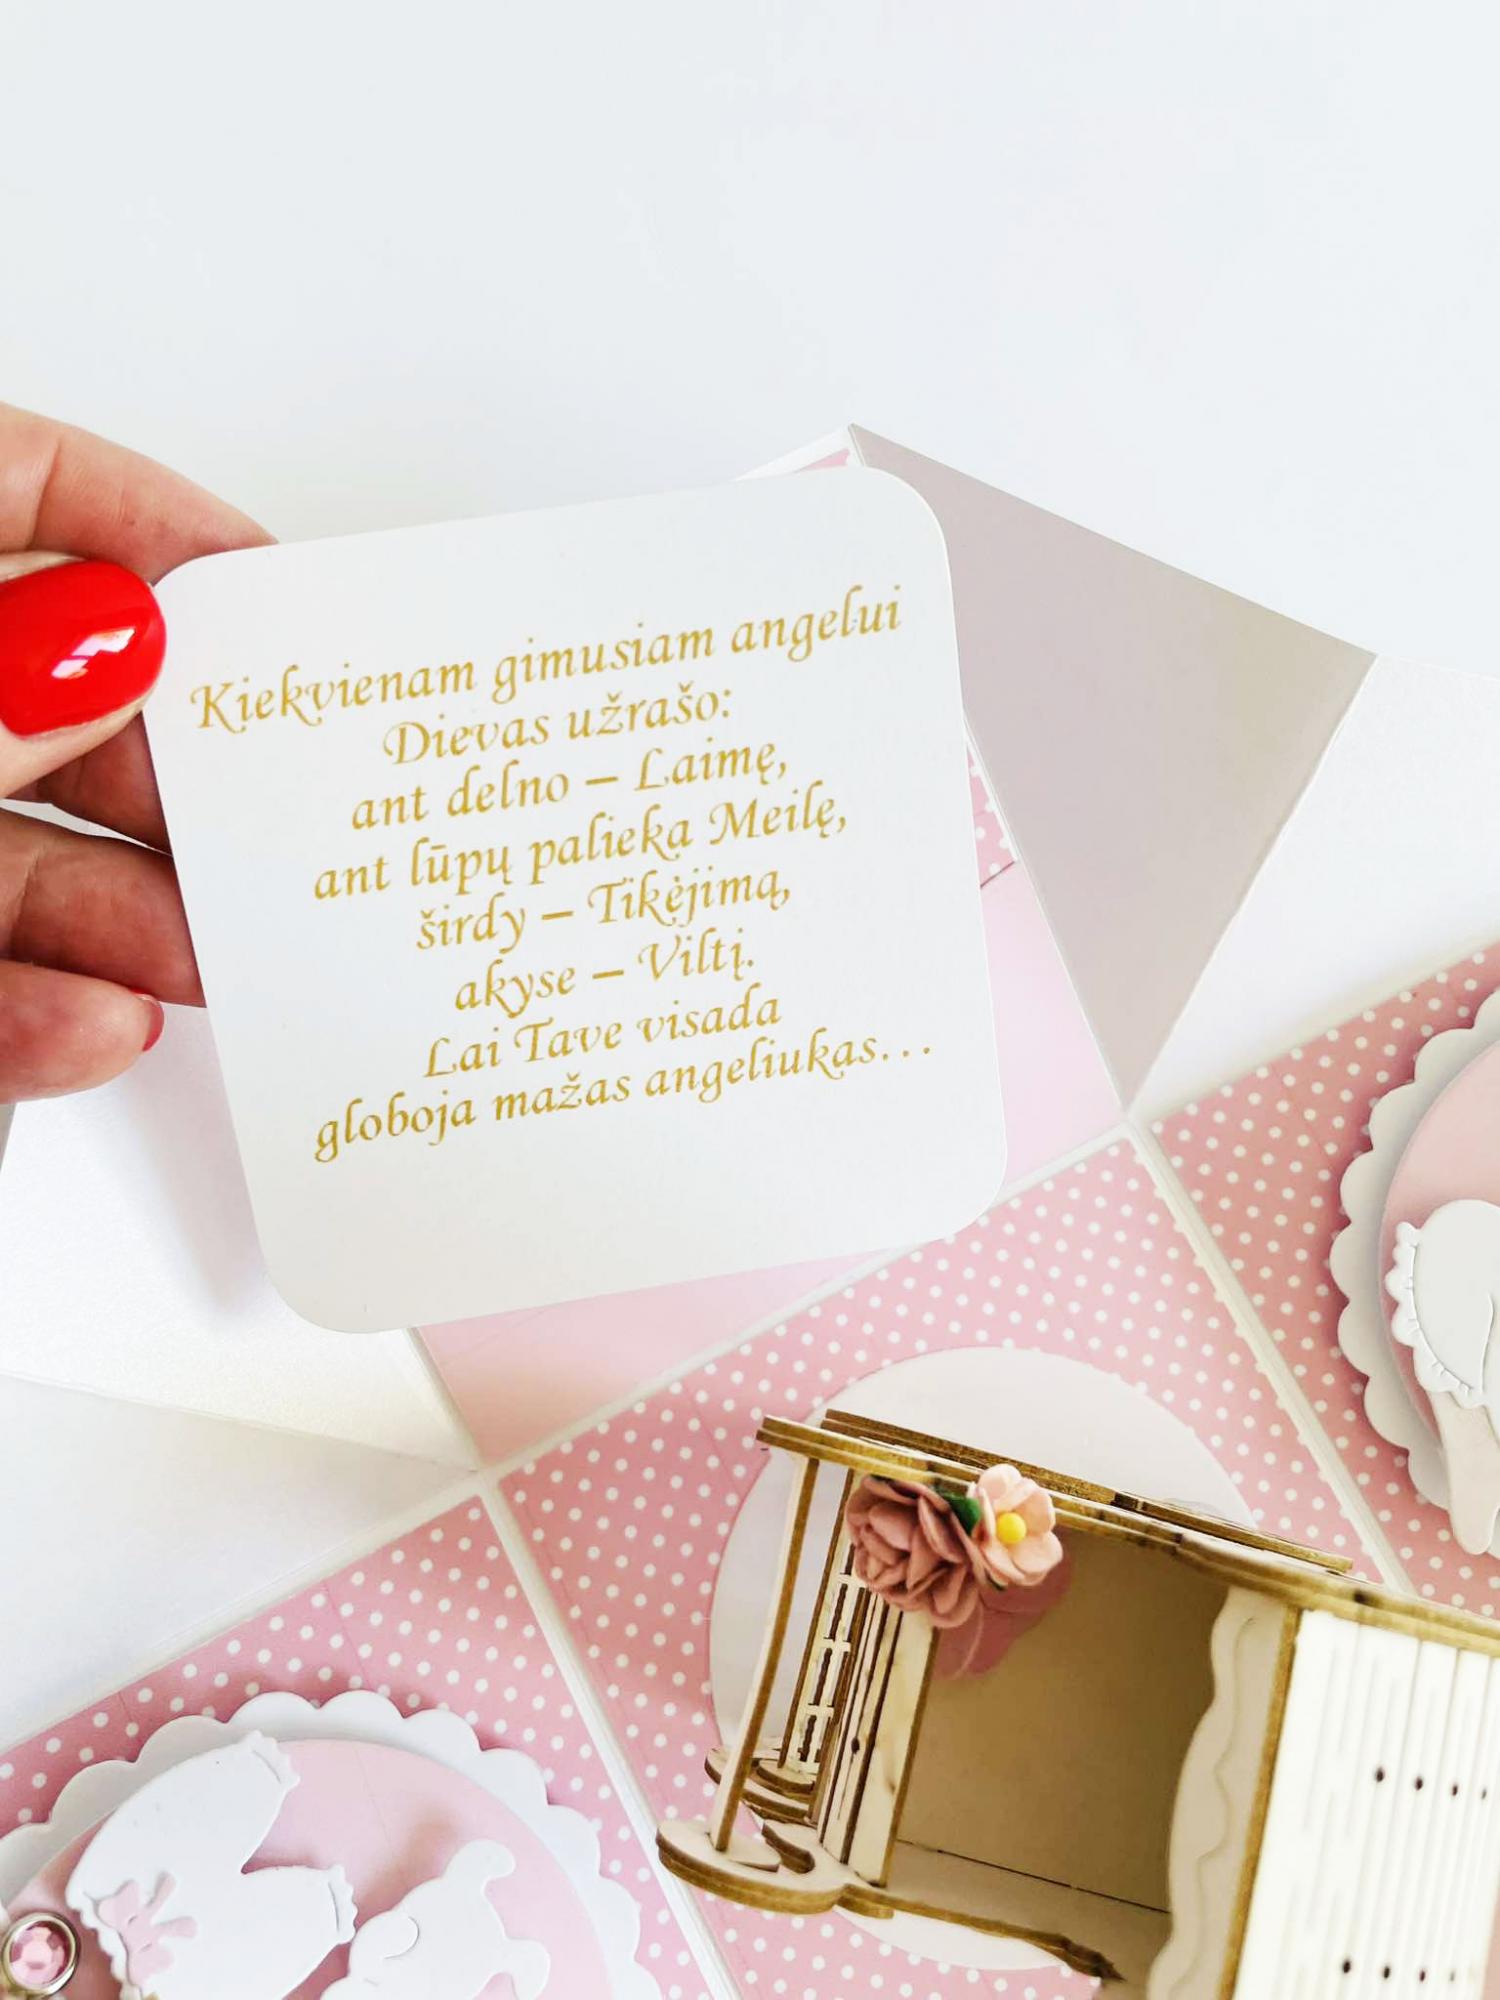 Kiekvienam gimusiam angelui
Dievas užrašo:
ant delno – Laimę,
ant lūpų palieka Meilę,
širdy – Tikėjimą,
akyse – Viltį.
Lai Tave visada
globoja mažas angeliukas...